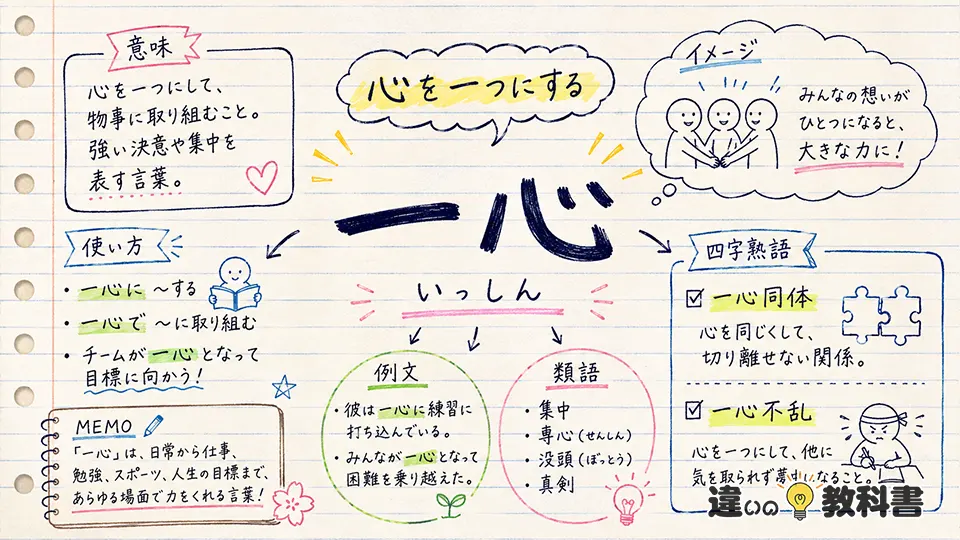 意味
心を一つにして、
物事に取り組むこと。
強い決意や集中を
表す言葉。
心を一つにする
イメージ
みんなの想いが
ひとつになると、
大きな力に！
一心
いっしん
使い方
・一心に ～する
・一心で ～に取り組む
・チームが一心となって
目標に向かう！
MEMO
「一心」は、日常から仕事、
勉強、スポーツ、人生の目標まで、
あらゆる場面で力をくれる言葉！
例文
・彼は一心に練習に
打ち込んでいる。
・みんなが一心となって
困難を乗り越えた。
類語
・集中
・専心（せんしん）
・没頭（ぼっとう）
・真剣
四字熟語
☑ 一心同体
心を同じくして、
切り離せない関係。
☑ 一心不乱
心を一つにして、他に
気を取られず夢中になること。
違いの教科書